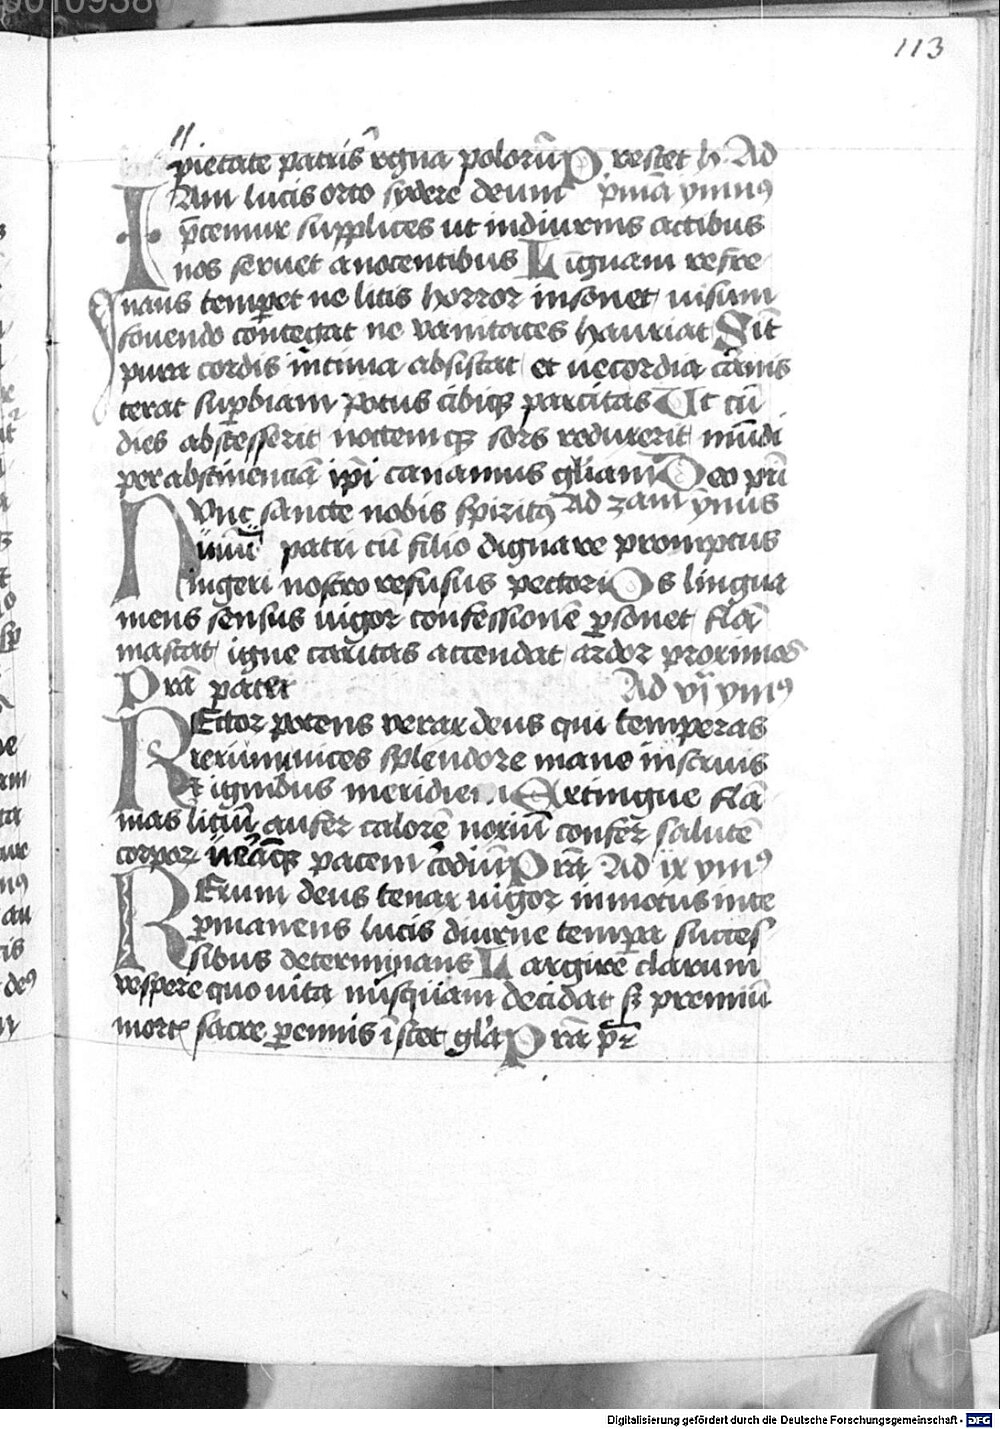 113
pietate patris regna polorū Prestet h. Ad
IAm lucis orto sydere deum pͥmā ymnus
p̄cemur supplices ut in diurnis actibus
nos seruet a nocentibus Linguam refre
nans temperet ne litis horror insonet uisum
fouendo contegat ne vanitates hauriat Sīt
pura cordis intima absistat et uecordia carnis
terat suꝑbiam potus cibiqꝫ parcitas Ut cū
dies abscesserit noctemqꝫ sors reduxerit mūdi
per abstinenciā ipi canamus gliam Deo pri
NUnc sancte nobis spiritꝰ Ad 3am ymnus
unū patri cū filio dignare promptus
ingeri nostro refusus pectori Os lingua
mens sensus uigor confessionē ꝑsonet flā
mascat igne caritas accendat ardor proximos
Prā pater Ad vi ymꝰ
REctor potens verax deus qui temperas
rerum uices splendore mane instruis
et ignibus meridiem Extingue flā
mas litiū aufer calorē noxiū confer salutē
corpor pacem cōdiū Prā Ad ix ymꝰ
RErum deus tenax uigor inmotus in te
ꝑmanens lucis diurne tempora succes
sibus determinans Largire clarum
vespere quo uita nusquam decidat sꝫ premiū
mort sacre ꝑennis īstet gla Prā pr
Digitalisierung gefördert durch die Deutsche Forschungsgemeinschaft - DFG